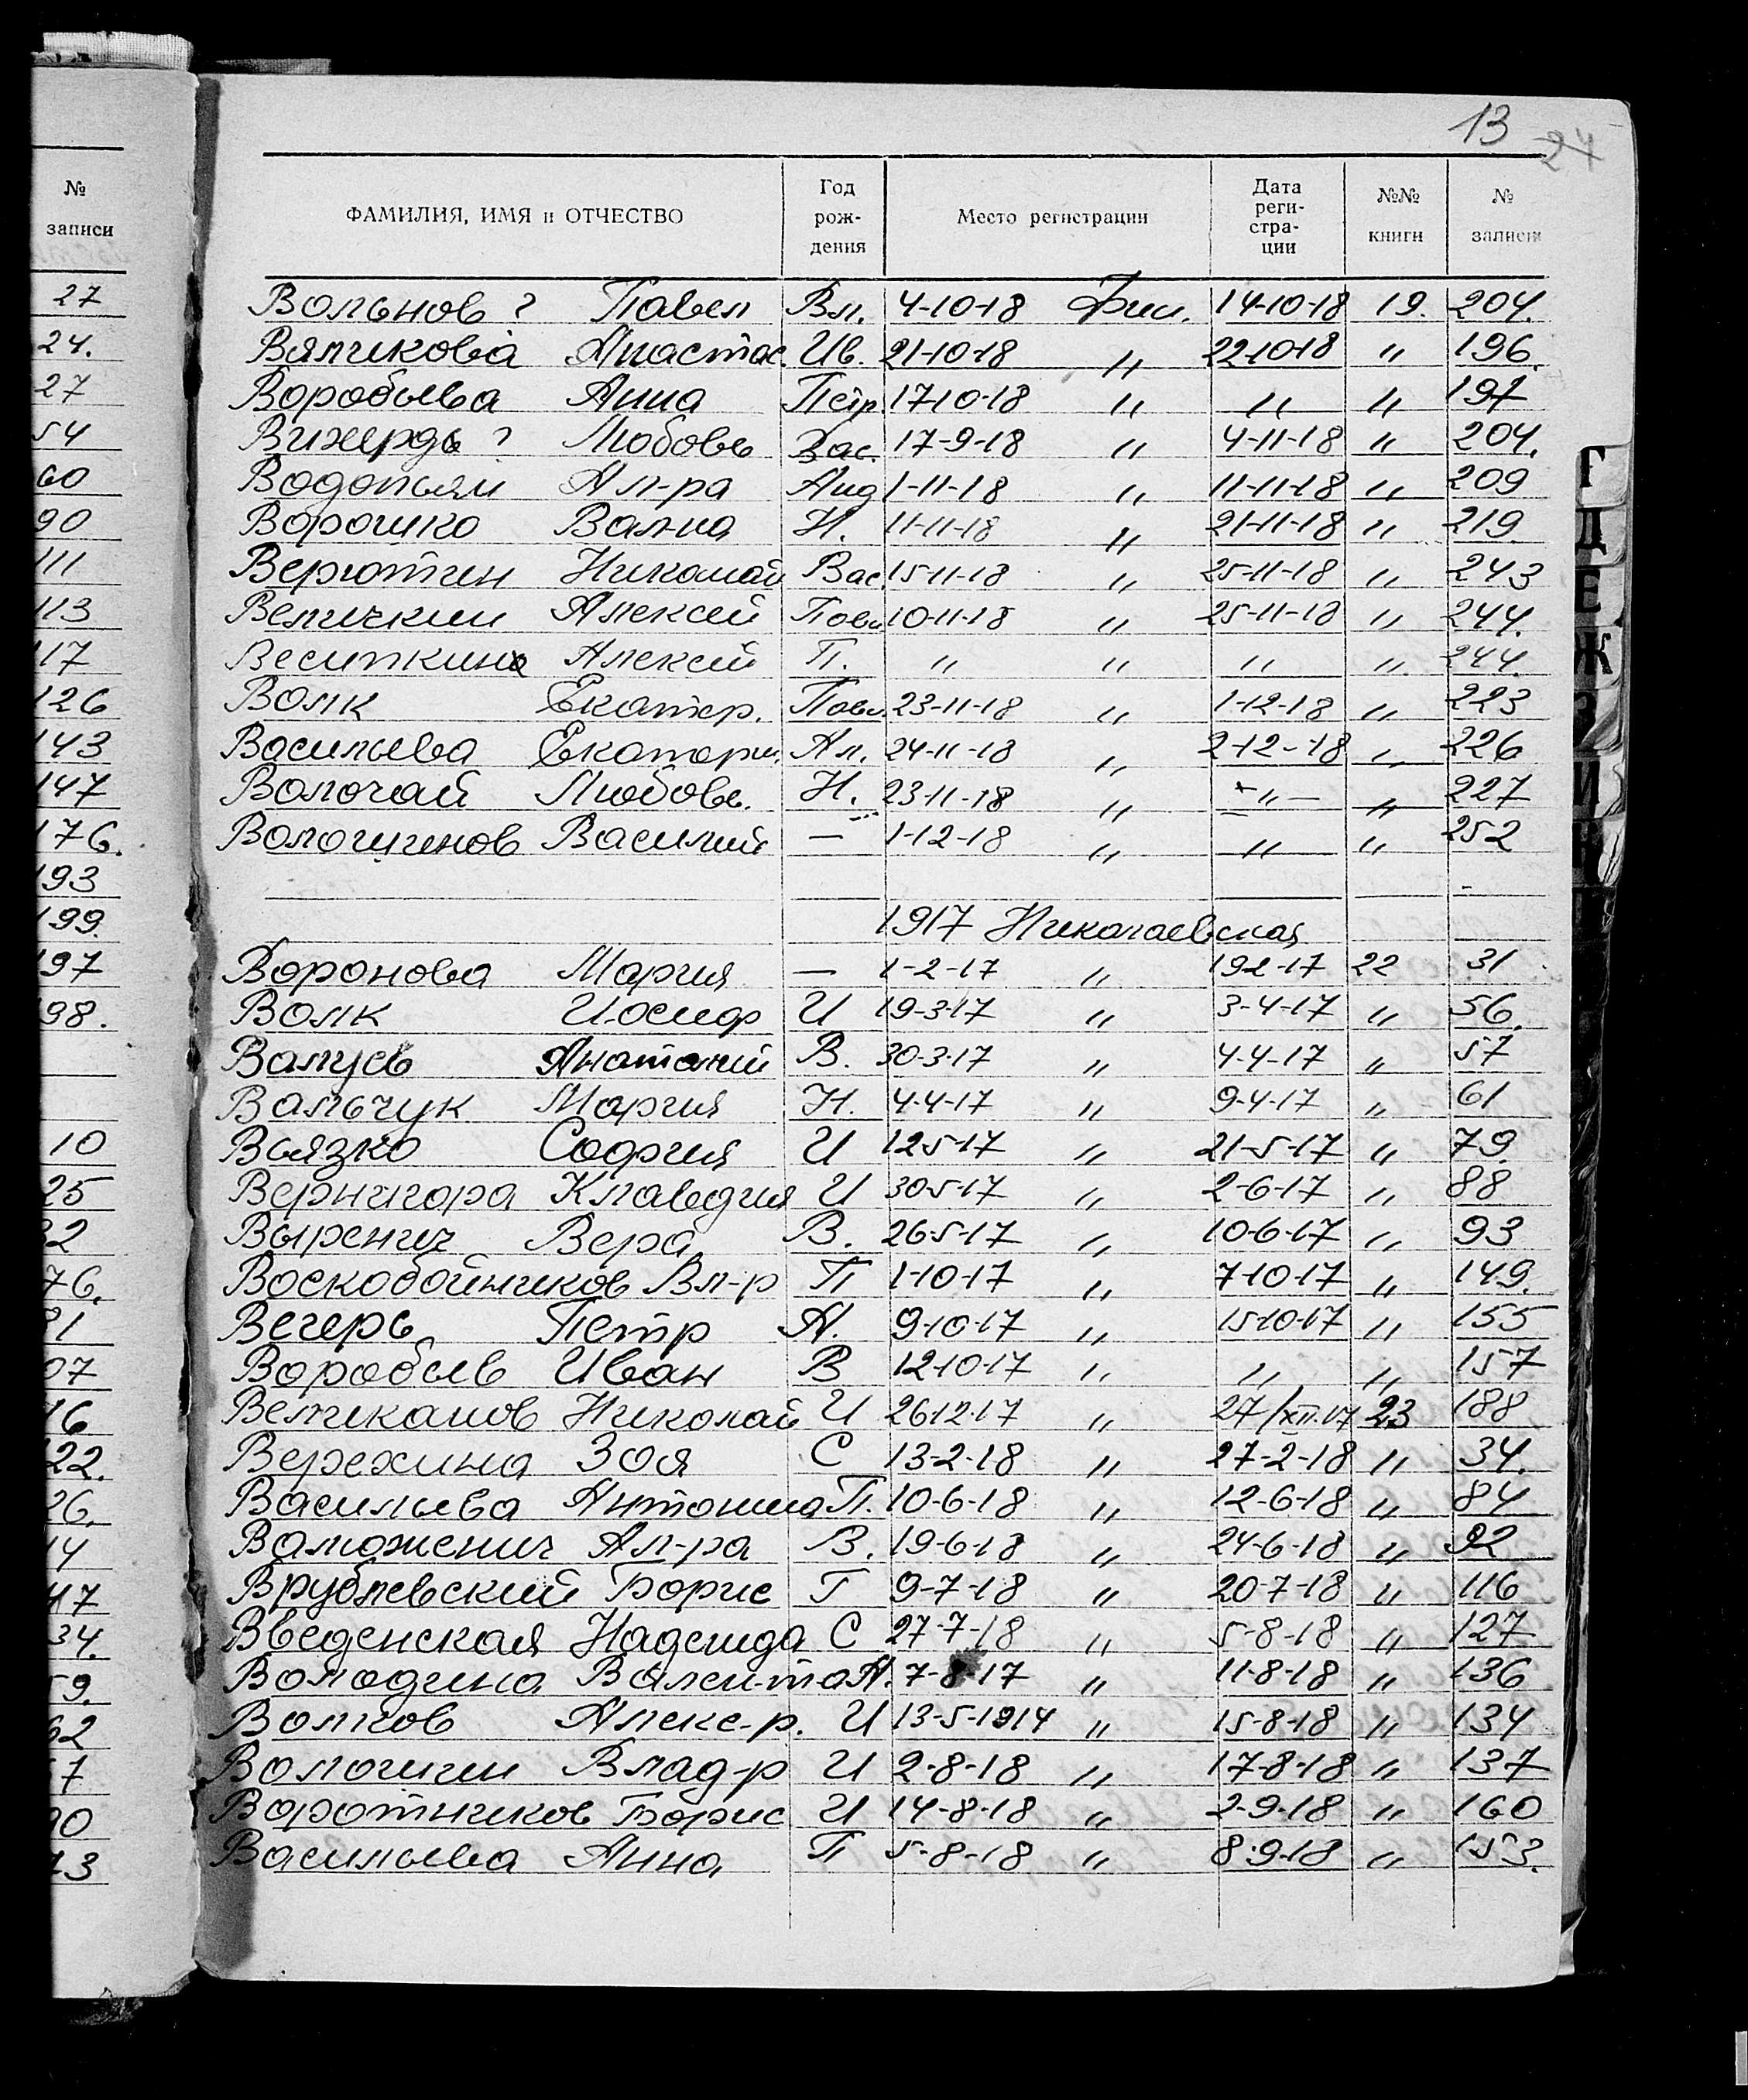 13 24
№ записи
ФАМИЛИЯ, ИМЯ и ОТЧЕСТВО Год рож- дения Место регистрации Дата реги- стра- ции №№ книги № записи
27 Вольнов ? Павел Вл. 4-10-18 Фил. 14-10-18 19. 204.
24. Вяликова Анастас. Ив. 21-10-18 " 22-10-18 " 196.
27 Воробьева Анна Петр. 17-10-18 " " " 197
54 ? Любовь Вас. 17-9-18 " 4-11-18 " 204.
60 Водопьян Ал-ра Анд 1-11-18 " 11-11-18 " 209
90 Ворошко Вал-на Н. 11-11-18 " 21-11-18 " 219.
111 Верютин Николай Вас. 15-11-18 " 25-11-18 " 243
113 Величкин Алексей Павл 10-11-18 " 25-11-18 " 244.
117 Алексей П. " " " " 244.
126 Волк Екатер. Павл. 23-11-18 " 1-12-18 " 223
143 Васильева Екатери. Ал. 24-11-18 " 2-12-18 " 226
147 Волочай Любовь. Н. 23-11-18 " -"- " 227
176. Вологигинов Василий — 1-12-18 " " " 252
193
199. 1917 Николаевская
197 Воронова Мария — 1-2-17 " 19-2-17 22 31
98. Волк Иосиф И 19-3-17 " 3-4-17 " 56.
Валуев Анатолий В. 30-3-17 " 4-4-17 " 57
Вальчук Мария Н. 4-4-17 " 9-4-17 " 61
10 Вьязко София И 12-5-17 " 21-5-17 " 79.
25 Вернигора Клавдия И 30-5-17 " 2-6-17 " 88
32 Выренич Вера В. 26-5-17 " 10-6-17 " 93
76. Воскобойников Вл-р П 1-10-17 " 7-10-17 " 149.
91 Вегерь Петр А. 9-10-17 " 15-10-17 " 155
07 Воробьев Иван В 12-10-17 " " " 157
16 Великанов Николай И 26-12-17 " 27/XII-17 23 188
22. Верехина Зоя С 13-2-18 " 27-2-18 " 34.
26. Васильева Антонина П. 10-6-18 " 12-6-18 " 84
14 Валюженич Ал-ра В. 19-6-18 " 24-6-18 " 92
47 Врублевский Борис Г 9-7-18 " 20-7-18 " 116
34. Введенская Надежда С 27-7-18 " 5-8-18 " 127
59. Володина А. 7-8-17 " 11-8-18 " 136
62 Волков Алекс-р. И 13-5-1914 " 15-8-18 " 134
7 Вологигин Влад-р И 2-8-18 " 17-8-18 " 137
90 Воротников Борис И 14-8-18 " 2-9-18 " 160
73 Васильева Анна П 5-8-18 " 8-9-18 " 153.
Г
Д
Е
Ж
З
И